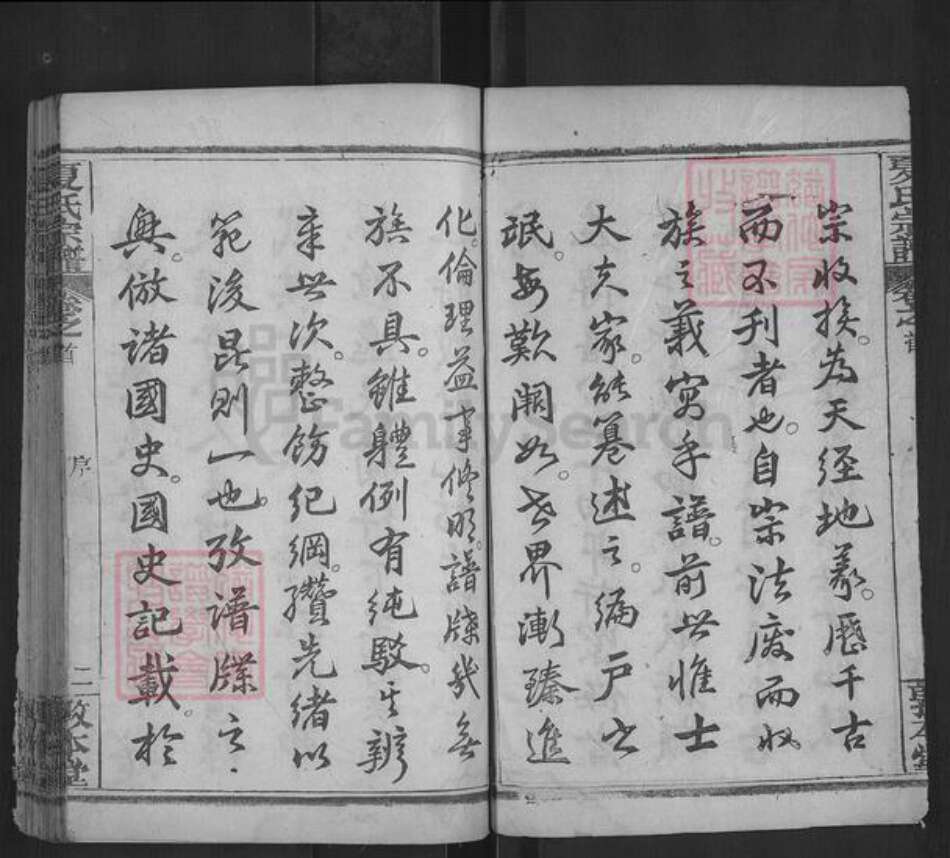 宗收族。为天经地義。歷千古
而不刋者也。自宗法廢而收
族之義寓乎譜。前世惟士
大夫家能篹述之。编户之
氓。每歎闕如。世界漸臻進
化。倫理益事修明。譜牒幾無
族不具。雖體例有純駁。其辨
章世次。整飭纪綱。纘先绪以
範後昆則一也。攷谱牒之
興。倣諸國史。國史記載。於
夏氏宗譜
卷之首
序
二
敦本堂
FamilySearch